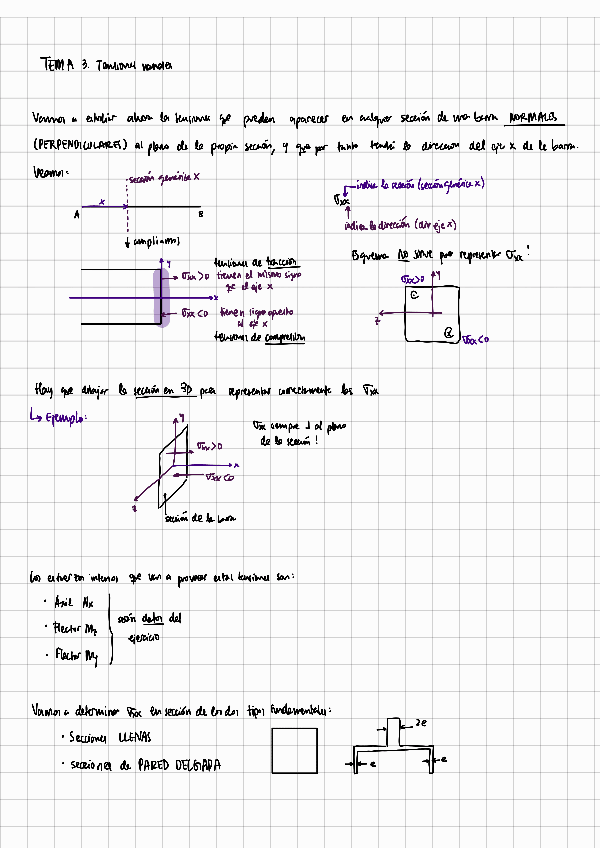 TEMA 3. Tensiones normales
Vamos a estudiar ahora las tensiones que pueden aparecer en cualquier sección de una barra NORMALES
(PERPENDICULARES) al plano de la propia sección, y que por tanto tendrá la dirección del eje X de la barra.
Veamos:
sección genérica X
x
A B
ampliamos
indica la sección (sección genérica x)
σxx
indica la dirección (dir eje x)
Esquema NO sirve para representar σxx!
tensiones de tracción
y
σxx>0 tienen el mismo signo
que el eje x
x
σxx<0 tienen signo opuesto
al eje x
tensiones de compresión
σxx>0 y
z
σxx<0
Hay que dibujar la sección en 3D para representar correctamente las σxx
↳ Ejemplo:
y
σxx>0
x
σxx<0
z
sección de la barra
σxx siempre ⊥ al plano
de la sección!
Los esfuerzos internos que van a provocar estas tensiones son:
· Axil Nx
· Flector Mz
· Flector My
serán datos del
ejercicio
Vamos a determinar σxx en sección de los dos tipos fundamentales:
· Secciones LLENAS
· secciones de PARED DELGADA
2e
e
e